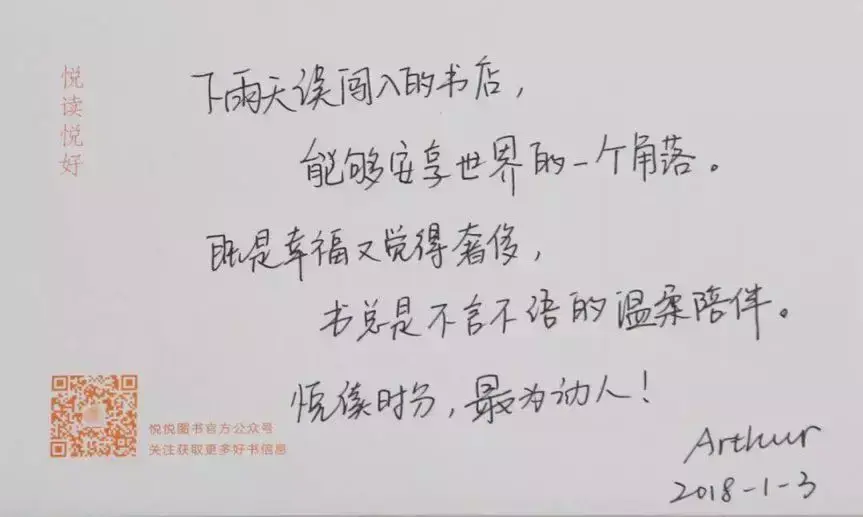 悦读悦好
下雨天误闯入的书店，
能够安享世界的一个角落。
既是幸福又觉得奢侈，
书总是不言不语的温柔陪伴。
悦读时分，最为动人！
Arthur
2018-1-3
悦悦图书官方公众号
关注获取更多好书信息